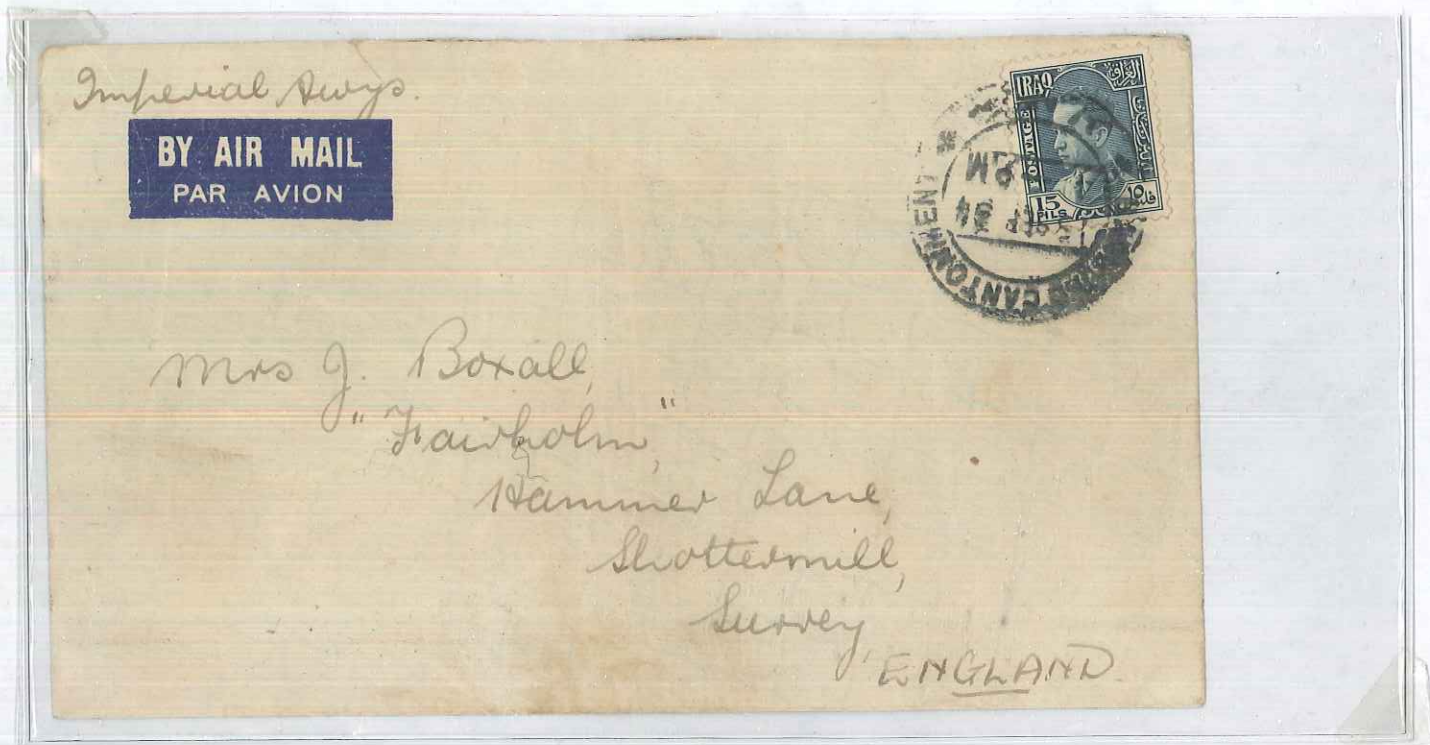 Imperial Awys.
BY AIR MAIL
PAR AVION
IRAQ
العراق
POSTAGE
15
PILS
١٥
CANTONMENT
SEP 34
PM
Mrs J. Boxall,
"Fairholm",
Hammer Lane,
Shottermill,
Surrey,
ENGLAND.